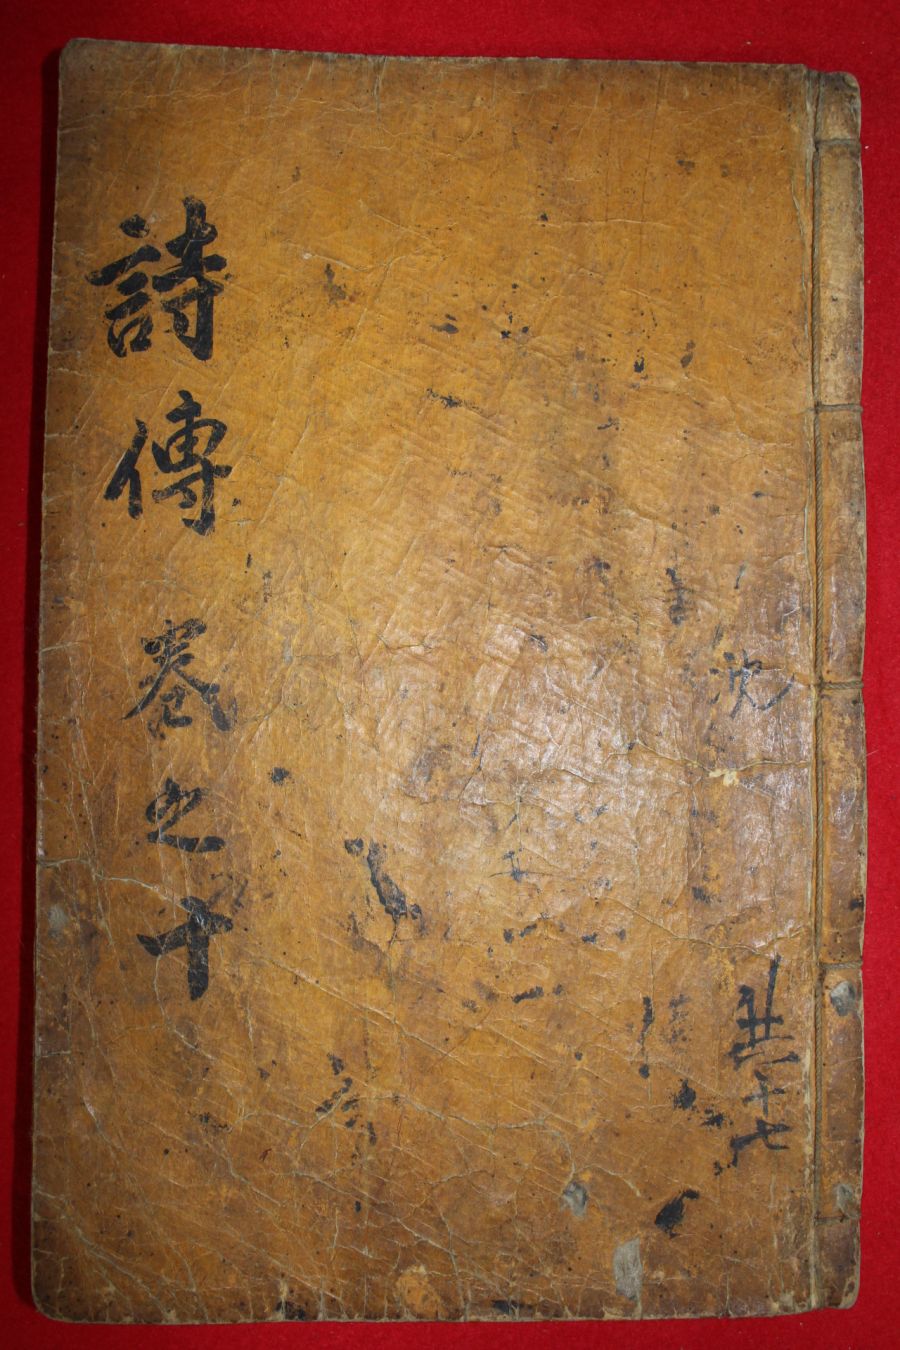 共十七
詩傳 卷之十